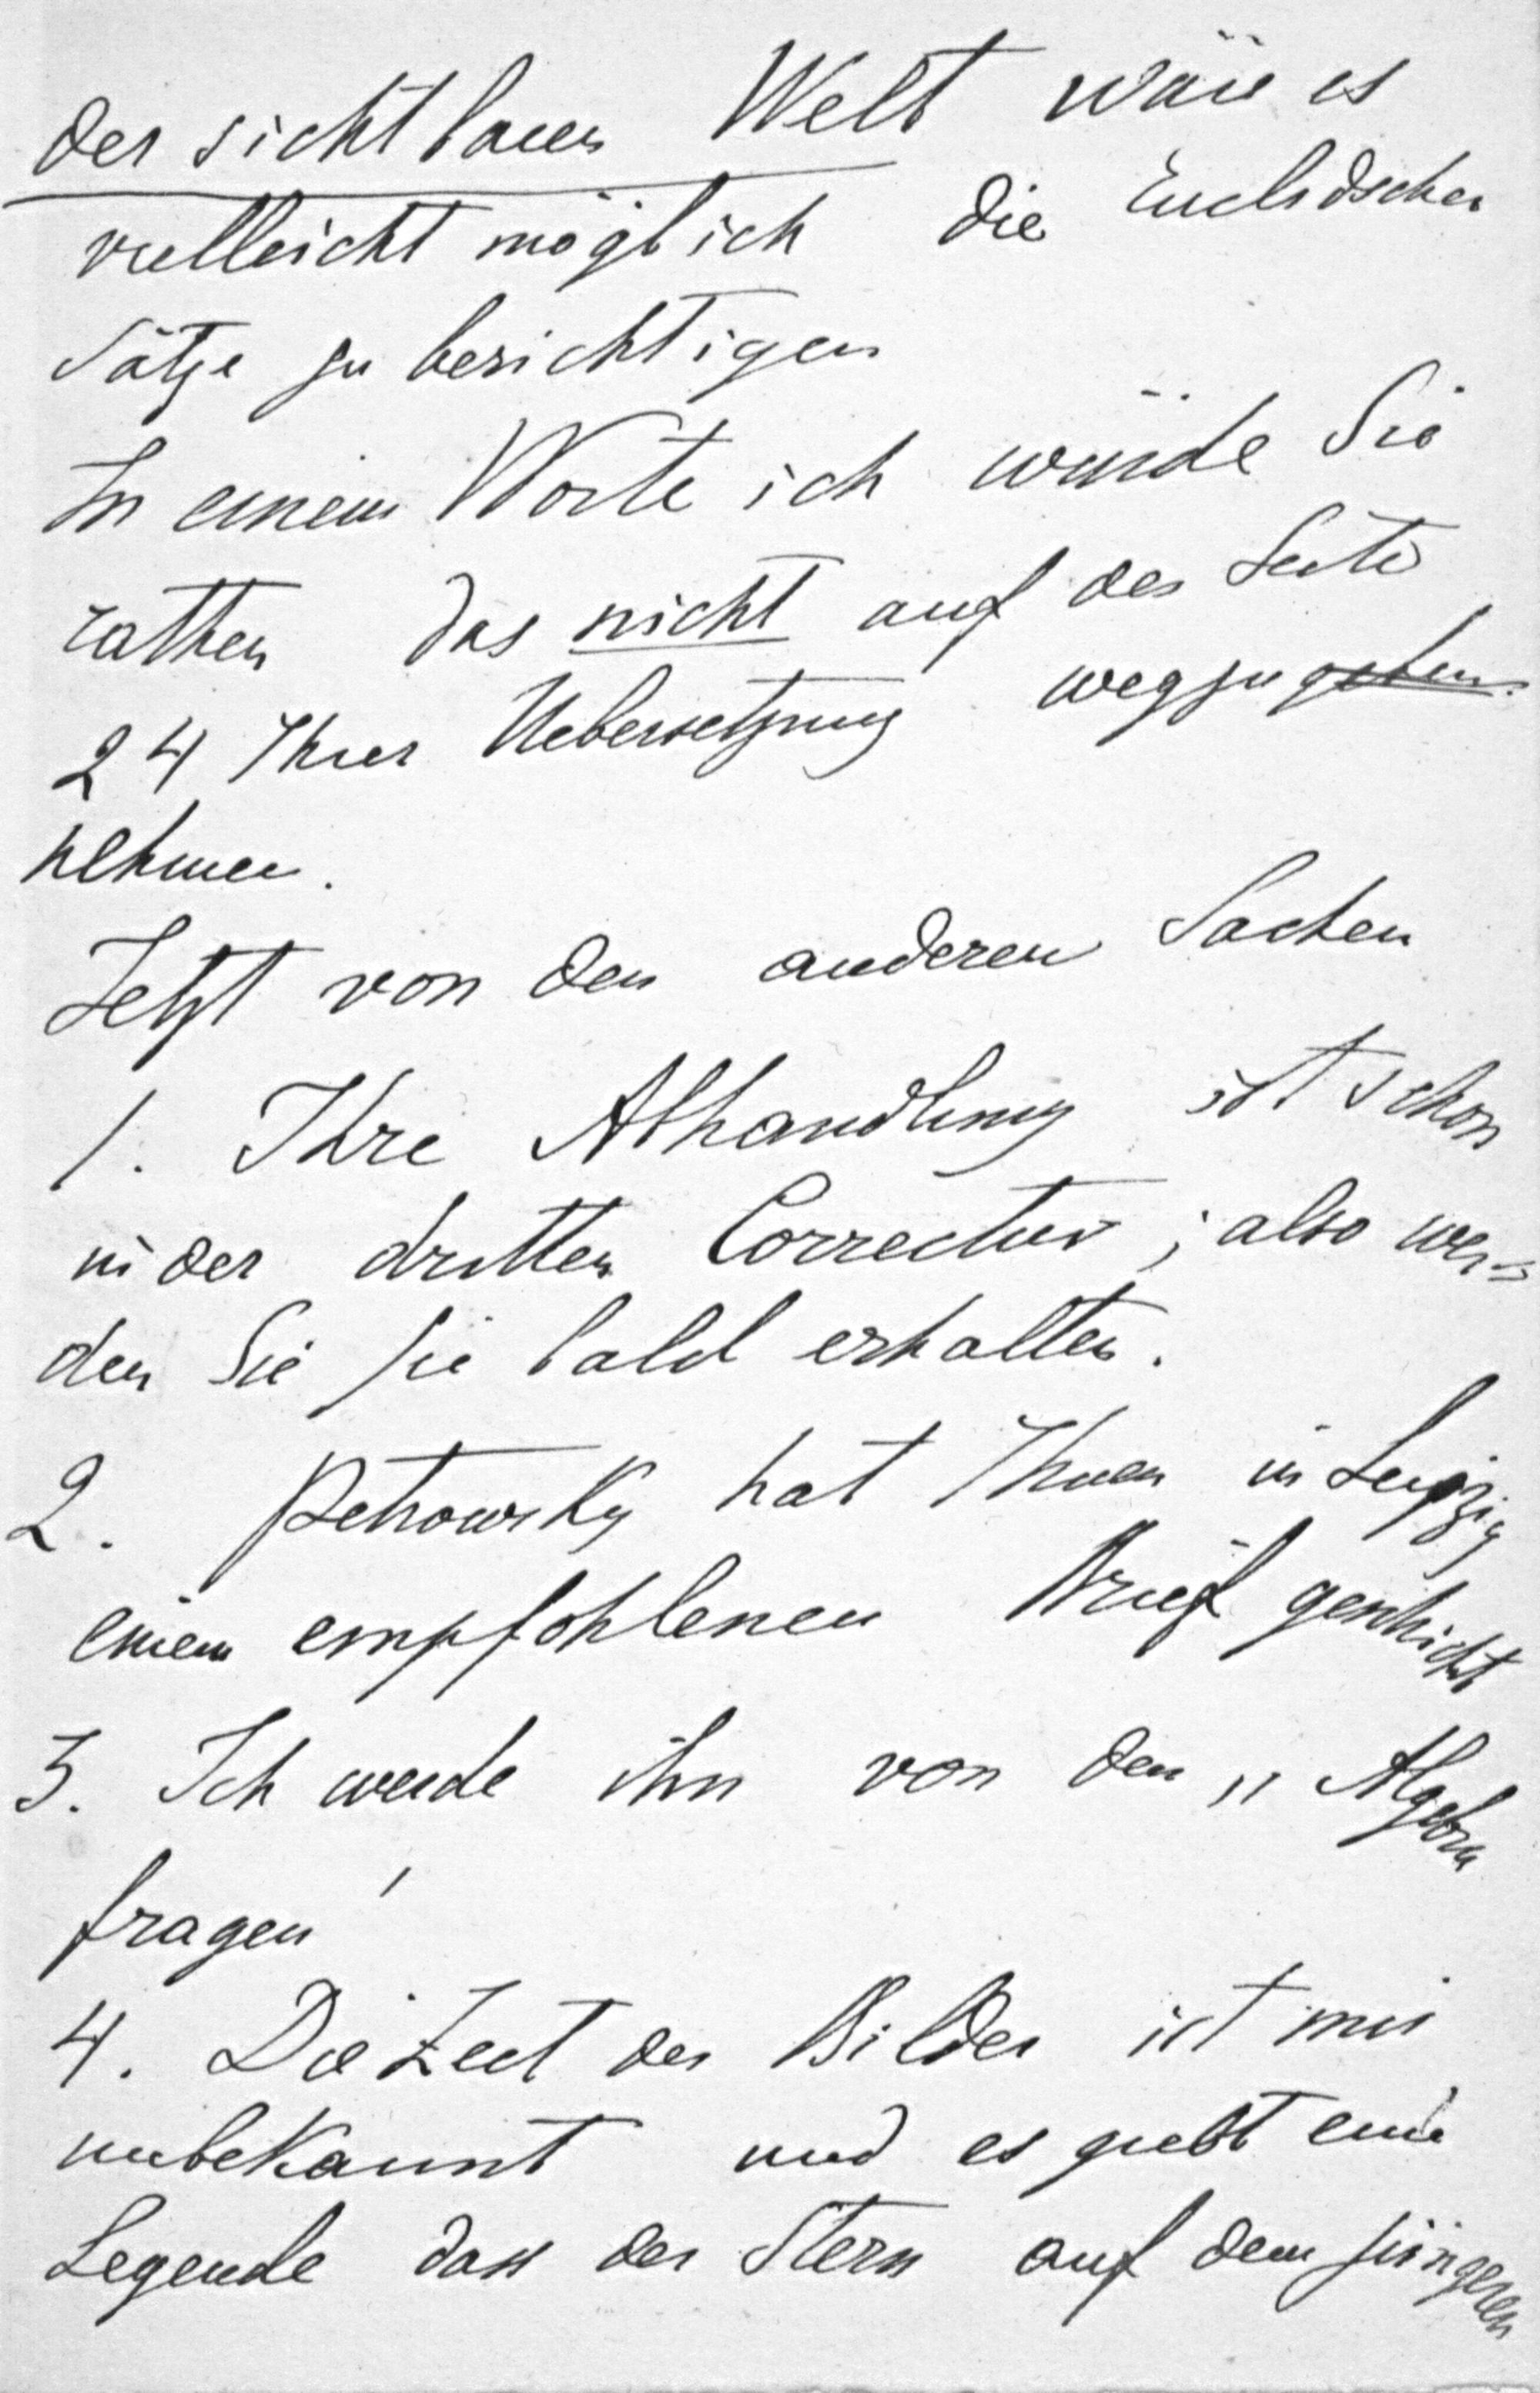 der sichtbaren Welt wäre es
vielleicht möglich die Euclidschen
Sätze zu berichtigen
In einem Worte ich würde Sie
rathen das nicht auf der Seite
24 Ihrer Uebersetzung wegzugeben.
nehmen.
Jetzt von den anderen Sachen
1. Ihre Abhandlung ist schon
in der dritten Correctur; also wer-
den Sie sie bald erhalten.
2. Petrowsky hat Ihnen in Leipzig
einem empfohlenen Brief geschickt
3. Ich werde ihn von den „Algebra
fragen
4. Die Zeit der Bilder ist mir
unbekannt und es giebt eine
Legende dass der Stern auf dem jüngeren